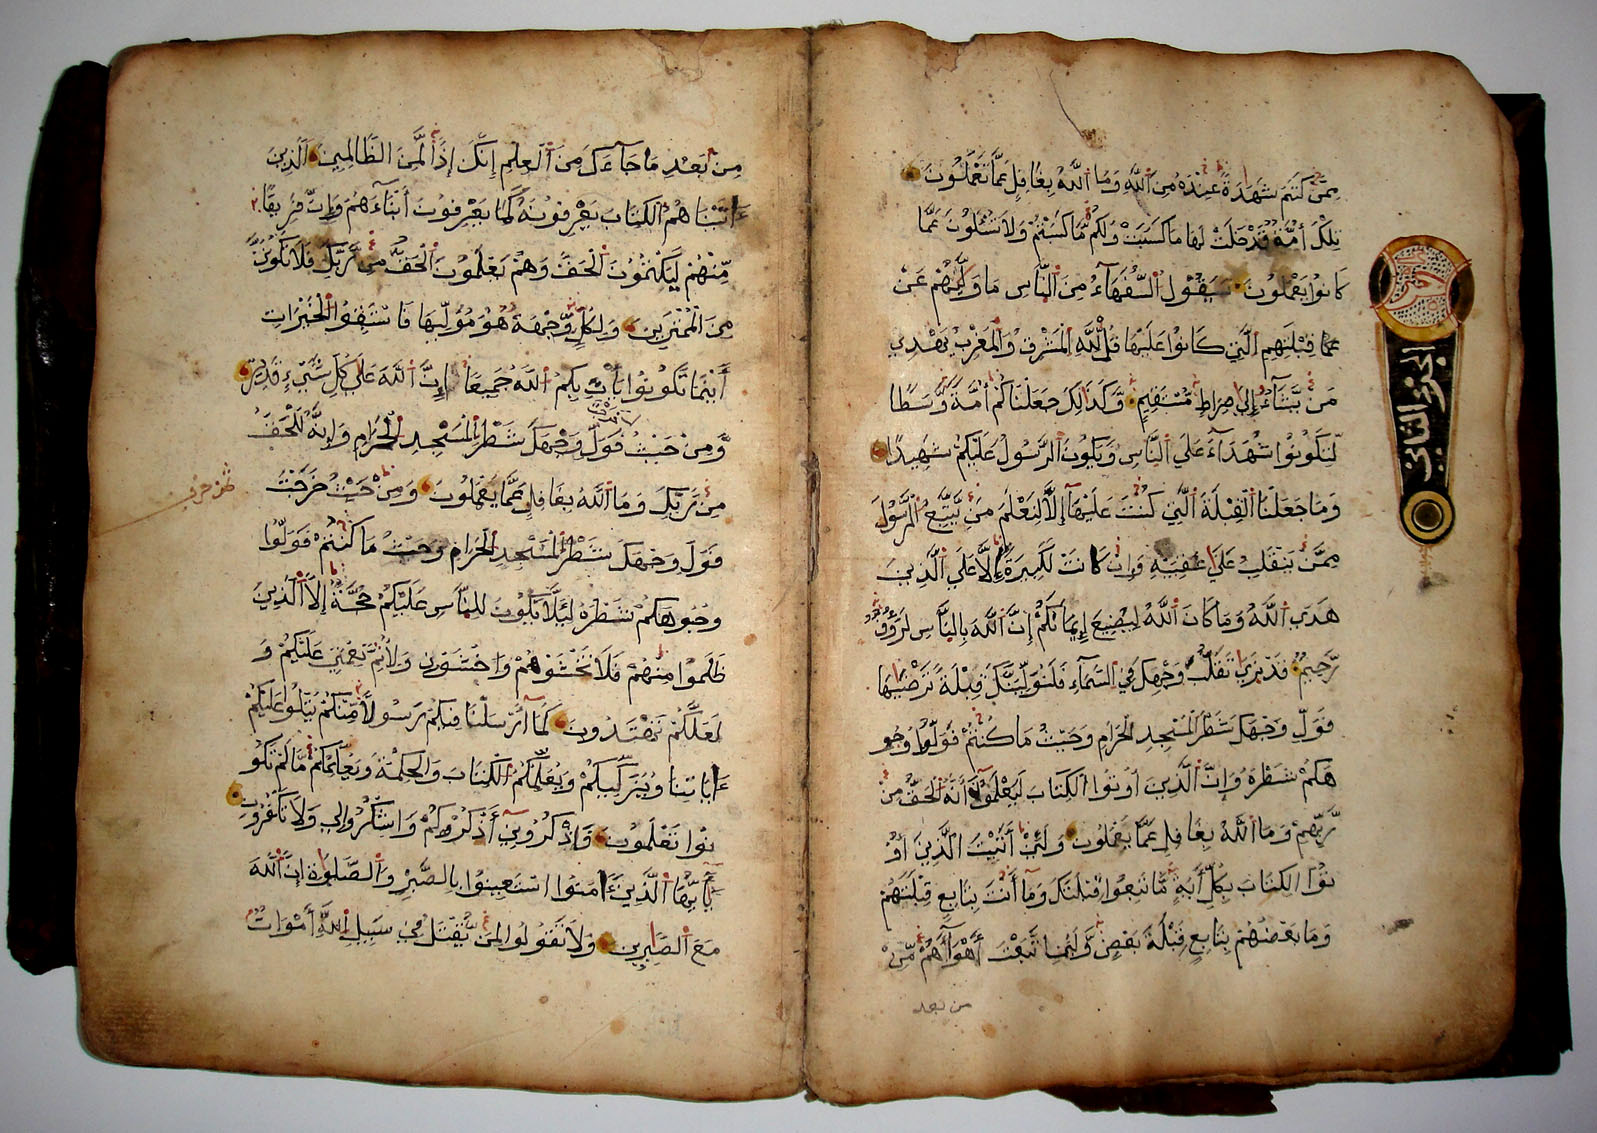 مِمَّن كَتَمَ شَهَادَةً عِندَهُ مِنَ ٱللَّهِ وَمَا ٱللَّهُ بِغَافِلٍ عَمَّا تَعْمَلُونَ
تِلْكَ أُمَّةٌ قَدْ خَلَتْ لَهَا مَا كَسَبَتْ وَلَكُم مَّا كَسَبْتُمْ وَلَا تُسْئَلُونَ عَمَّا
كَانُوا يَعْمَلُونَ سَيَقُولُ ٱلسُّفَهَآءُ مِنَ ٱلنَّاسِ مَا وَلَّىٰهُمْ عَنْ
قِبْلَتِهِمُ ٱلَّتِي كَانُوا عَلَيْهَا قُل لِّلَّهِ ٱلْمَشْرِقُ وَٱلْمَغْرِبُ يَهْدِي
مَن يَّشَآءُ إِلَىٰ صِرَاطٍ مُّسْتَقِيمٍ وَكَذَٰلِكَ جَعَلْنَاكُمْ أُمَّةً وَّسَطًا
لِّتَكُونُوا شُهَدَآءَ عَلَى ٱلنَّاسِ وَيَكُونَ ٱلرَّسُولُ عَلَيْكُمْ شَهِيدًا
وَمَا جَعَلْنَا ٱلْقِبْلَةَ ٱلَّتِي كُنتَ عَلَيْهَآ إِلَّا لِنَعْلَمَ مَن يَّتَّبِعُ ٱلرَّسُولَ
مِمَّن يَنقَلِبُ عَلَىٰ عَقِبَيْهِ وَإِن كَانَتْ لَكَبِيرَةً إِلَّا عَلَى ٱلَّذِينَ
هَدَى ٱللَّهُ وَمَا كَانَ ٱللَّهُ لِيُضِيعَ إِيمَانَكُمْ إِنَّ ٱللَّهَ بِالنَّاسِ لَرَءُوفٌ
رَّحِيمٌ قَدْ نَرَىٰ تَقَلُّبَ وَجْهِكَ فِي ٱلسَّمَآءِ فَلَنُوَلِّيَنَّكَ قِبْلَةً تَرْضَىٰهَا
فَوَلِّ وَجْهَكَ شَطْرَ ٱلْمَسْجِدِ ٱلْحَرَامِ وَحَيْثُ مَا كُنتُمْ فَوَلُّوا وُجُو
هَكُمْ شَطْرَهُ وَإِنَّ ٱلَّذِينَ أُوتُوا ٱلْكِتَابَ لَيَعْلَمُونَ أَنَّهُ ٱلْحَقُّ مِن
رَّبِّهِمْ وَمَا ٱللَّهُ بِغَافِلٍ عَمَّا يَعْمَلُونَ وَلَئِنْ أَتَيْتَ ٱلَّذِينَ أُو
تُوا ٱلْكِتَابَ بِكُلِّ آيَةٍ مَّا تَبِعُوا قِبْلَتَكَ وَمَآ أَنتَ بِتَابِعٍ قِبْلَتَهُمْ
وَمَا بَعْضُهُم بِتَابِعٍ قِبْلَةَ بَعْضٍ وَّلَئِنِ ٱتَّبَعْتَ أَهْوَآءَهُم مِّن
من بعد
الجزء الثاني
مِن بَعْدِ مَا جَآءَكَ مِنَ ٱلْعِلْمِ إِنَّكَ إِذًا لَّمِنَ ٱلظَّالِمِينَ ٱلَّذِينَ
ءَاتَيْنَاهُمُ ٱلْكِتَابَ يَعْرِفُونَهُ كَمَا يَعْرِفُونَ أَبْنَآءَهُمْ وَإِنَّ فَرِيقًا
مِّنْهُمْ لَيَكْتُمُونَ ٱلْحَقَّ وَهُمْ يَعْلَمُونَ ٱلْحَقُّ مِن رَّبِّكَ فَلَا تَكُونَنَّ
مِنَ ٱلْمُمْتَرِينَ وَلِكُلٍّ وِّجْهَةٌ هُوَ مُوَلِّيهَا فَاسْتَبِقُوا ٱلْخَيْرَاتِ
أَيْنَمَا تَكُونُوا يَأْتِ بِكُمُ ٱللَّهُ جَمِيعًا إِنَّ ٱللَّهَ عَلَىٰ كُلِّ شَيْءٍ قَدِيرٌ
وَّمِنْ حَيْثُ فَوَلِّ وَجْهَكَ شَطْرَ ٱلْمَسْجِدِ ٱلْحَرَامِ وَإِنَّهُ لَلْحَقُّ
مِن رَّبِّكَ وَمَا ٱللَّهُ بِغَافِلٍ عَمَّا يَعْمَلُونَ وَمِنْ حَيْثُ خَرَجْتَ
فَوَلِّ وَجْهَكَ شَطْرَ ٱلْمَسْجِدِ ٱلْحَرَامِ وَحَيْثُ مَا كُنتُمْ فَوَلُّوا
وُجُوهَكُمْ شَطْرَهُ لِئَلَّا يَكُونَ لِلنَّاسِ عَلَيْكُمْ حُجَّةٌ إِلَّا ٱلَّذِينَ
ظَلَمُوا مِنْهُمْ فَلَا تَخْشَوْهُمْ وَاخْشَوْنِي وَلِأُتِمَّ نِعْمَتِي عَلَيْكُمْ وَ
لَعَلَّكُمْ تَهْتَدُونَ كَمَآ أَرْسَلْنَا فِيكُمْ رَسُولًا مِّنكُمْ يَتْلُوا عَلَيْكُمْ
ءَايَاتِنَا وَيُزَكِّيكُمْ وَيُعَلِّمُكُمُ ٱلْكِتَابَ وَٱلْحِكْمَةَ وَيُعَلِّمُكُم مَّا لَمْ تَكُو
نُوا تَعْلَمُونَ فَاذْكُرُونِي أَذْكُرْكُمْ وَاشْكُرُوا لِي وَلَا تَكْفُرُونِ
يَآ أَيُّهَا ٱلَّذِينَ ءَامَنُوا اسْتَعِينُوا بِالصَّبْرِ وَٱلصَّلَوٰةِ إِنَّ ٱللَّهَ
مَعَ ٱلصَّٰبِرِينَ وَلَا تَقُولُوا لِمَن يُّقْتَلُ فِي سَبِيلِ ٱللَّهِ أَمْوَاتٌ